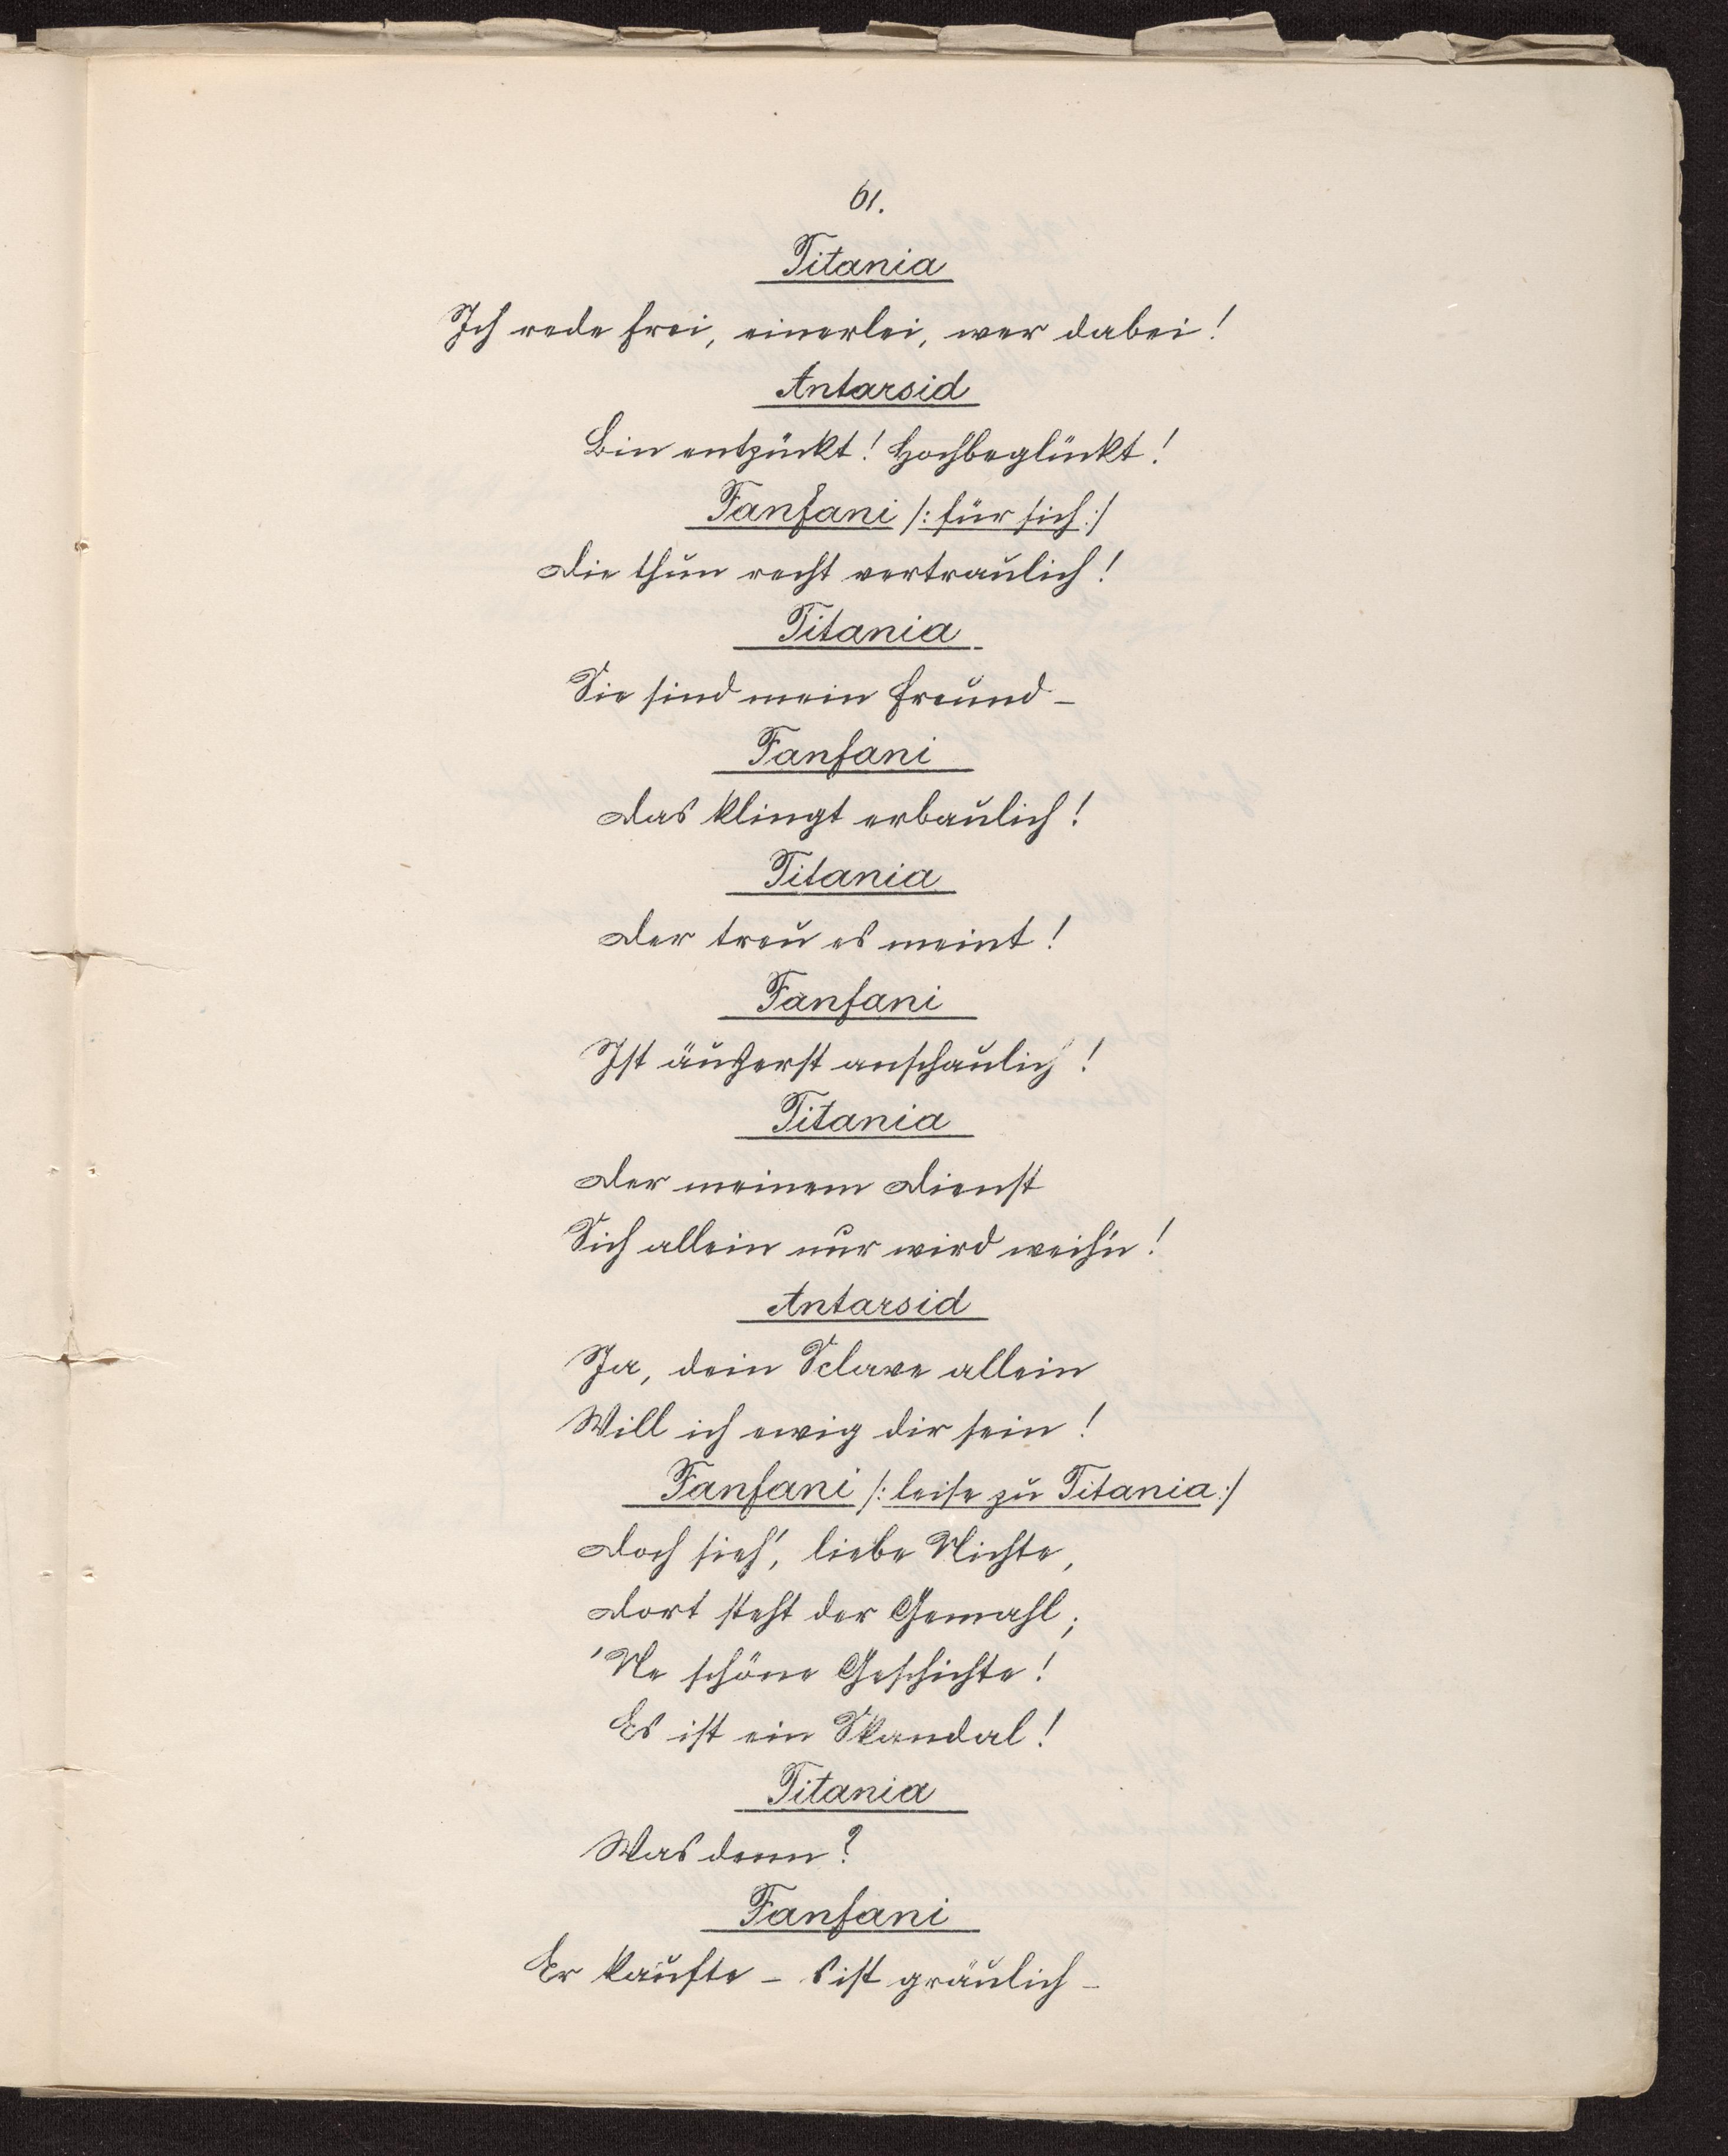 61.
Titania
Ich rede frei, einerlei, wer dabei!
Antarsid
Bin entzückt! Hochbeglückt!
Fanfani /: für sich :/
Die thun recht vertraulich!
Titania
Sie sind mein Freund –
Fanfani
Das klingt erbaulich!
Titania
Der treu es meint!
Fanfani
Ist äußerst anschaulich!
Titania
Der meinem Dienst
Sich allein nur wird weih'n!
Antarsid
Ja, dein Sclave allein
Will ich ewig dir sein!
Fanfani /: leise zu Titania :/
Doch sieh', liebe Nichte,
Dort steht der Gemahl;
'Ne schöne Geschichte!
Es ist ein Skandal!
Titania
Was denn?
Fanfani
Er kaufte – s ist gräulich –